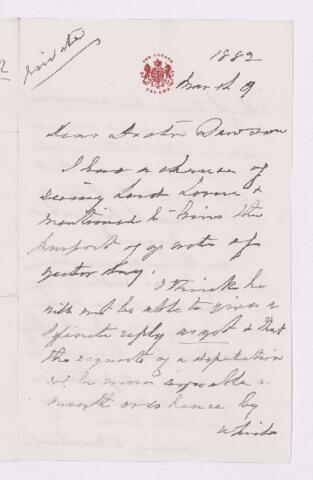 Private
2
1882
March 9.
Dear Doctor Dawson
I had a chance of
seeing Lord Lorne &
mentioned to him the
purport of yr note of
yesterday.
I think he
will not be able to give a
definite reply as yet & that
the request of a deputation
wd. be more agreeable a
month or so hence by
which